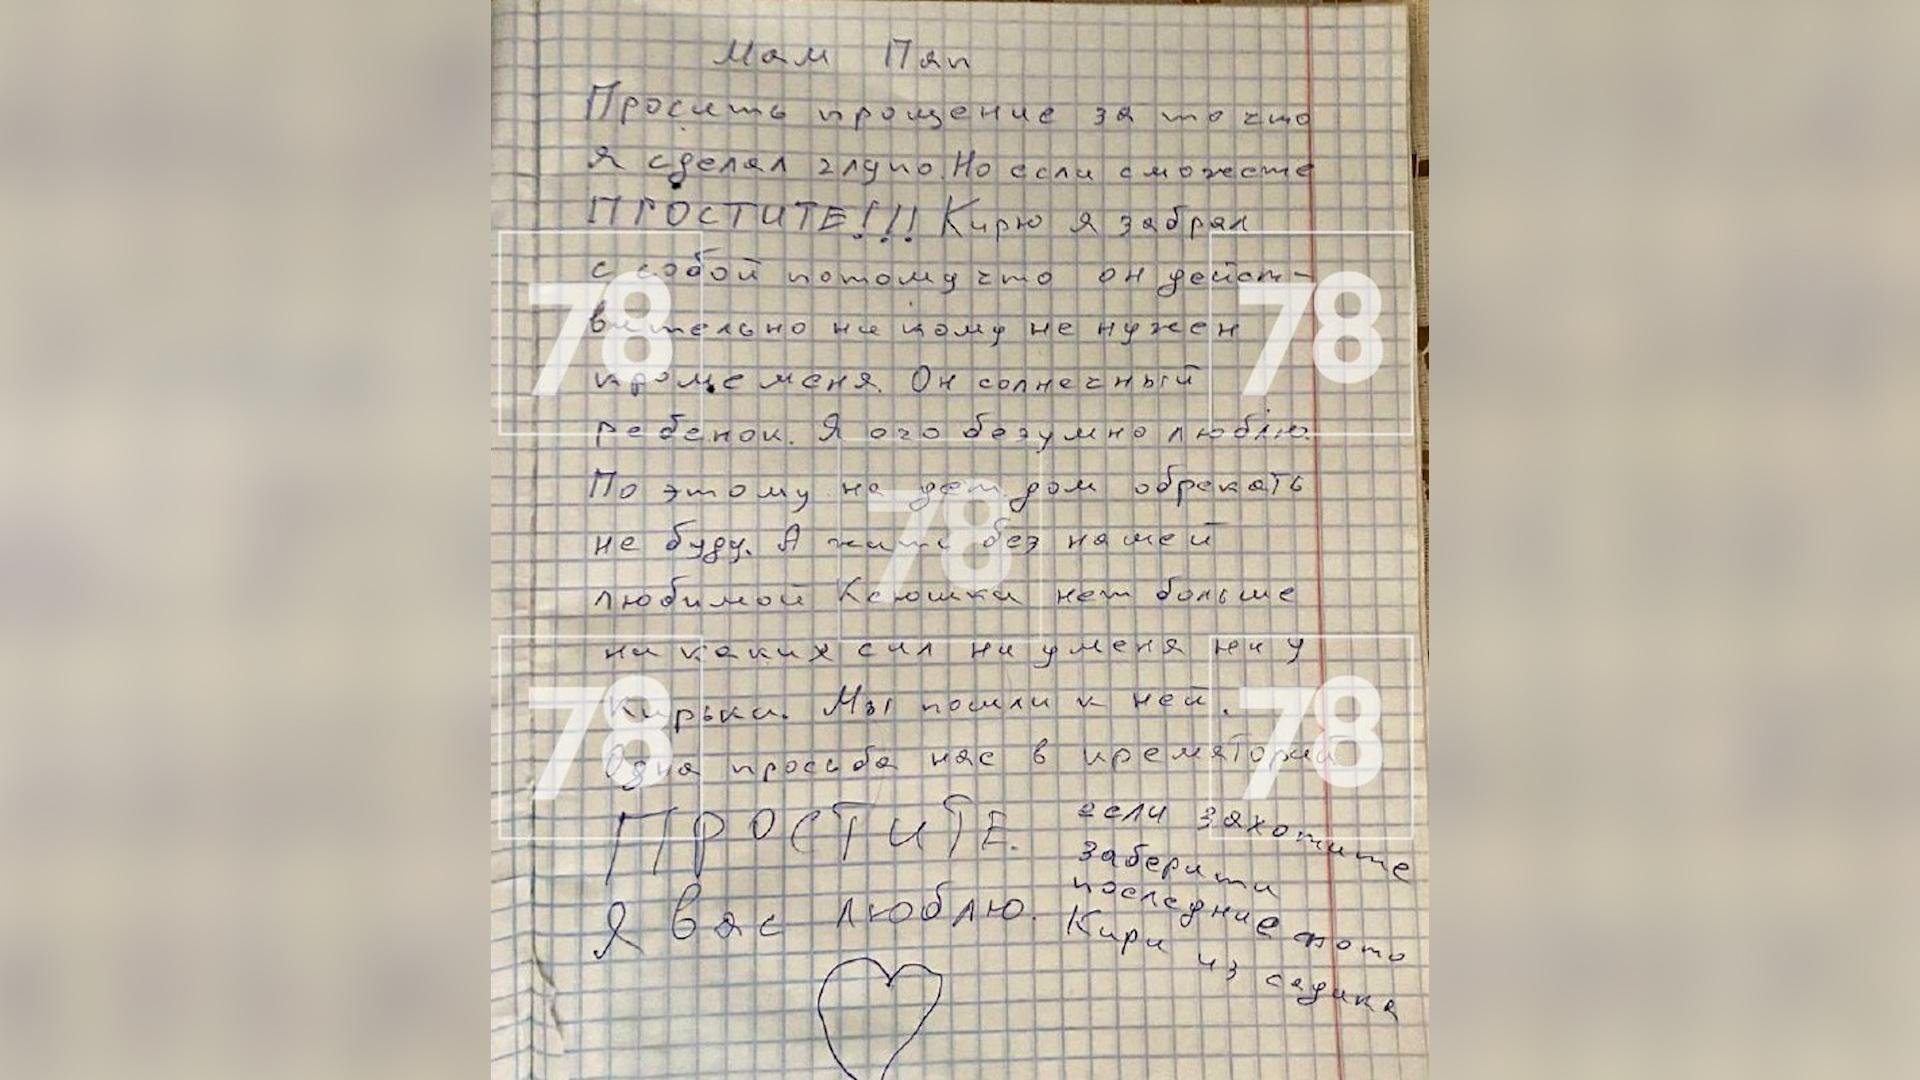 Мам Пап
Просить прощение за то что
я сделал глупо. Но если сможете
ПРОСТИТЕ!!! Кирю я забрал
с собой потому что он дейст-
вительно ни кому не нужен
кроме меня. Он солнечный
ребенок. Я его безумно люблю.
По этому на дет дом обрекать
не буду. А жить без нашей
любимой Ксюшки нет больше
ни каких сил ни у меня ни у
Кирьки. Мы пошли к ней.
Одна просьба нас в крематорий
ПРОСТИТЕ.
Я вас люблю.
если захотите
заберити
последние фото
Кири из садика
78
78
78
78
78